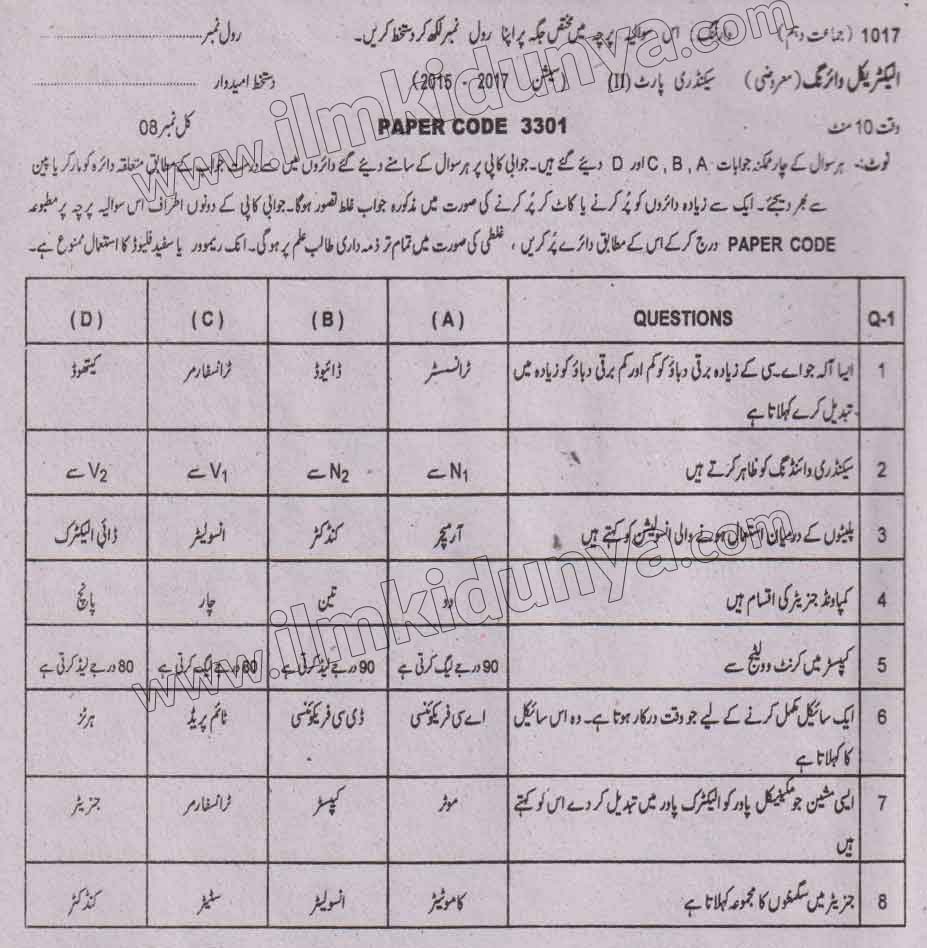 1017 (جماعت دہم) وارننگ: اس سوالیہ پرچہ میں مختص جگہ پر اپنا رول نمبر لکھ کر دستخط کریں۔ رول نمبر
الیکٹریکل وائرنگ (معروضی) سیکنڈری پارٹ (II) (سیشن 2017 - 2015) دستخط امیدوار
وقت 10 منٹ PAPER CODE 3301 کل نمبر 08
نوٹ:- ہر سوال کے چار ممکنہ جوابات C, B, A اور D دیئے گئے ہیں۔ جوابی کاپی پر ہر سوال کے سامنے دیئے گئے دائروں میں سے درست جواب کے مطابق متعلقہ دائرہ کو مارکر یا پین
سے بھر دیجئے۔ ایک سے زیادہ دائروں کو پُر کرنے یا کاٹ کر پُر کرنے کی صورت میں مذکورہ جواب غلط تصور ہوگا۔ جوابی کاپی کے دونوں اطراف اس سوالیہ پرچہ پر مطبوعہ
PAPER CODE درج کر کے اس کے مطابق دائرے پُر کریں، غلطی کی صورت میں تمام تر ذمہ داری طالب علم پر ہوگی۔ انک ریموور یا سفید فلیوڈ کا استعمال ممنوع ہے۔
Q-1 QUESTIONS (A) (B) (C) (D)
1 ایسا آلہ جو اے۔سی کے زیادہ برقی دباؤ کو کم اور کم برقی دباؤ کو زیادہ میں ٹرانسسٹر ڈائیوڈ ٹرانسفارمر کیتھوڈ
تبدیل کرے کہلاتا ہے
2 سیکنڈری وائنڈنگ کو ظاہر کرتے ہیں N1 سے N2 سے V1 سے V2 سے
3 پلیٹوں کے درمیان استعمال ہونے والی انسولیشن کو کہتے ہیں آرمیچر کنڈکٹر انسولیٹر ڈائی الیکٹرک
4 کمپاونڈ جنریٹر کی اقسام ہیں دو تین چار پانچ
5 کپیسٹر میں کرنٹ وولٹیج سے 90 درجے لیگ کرتی ہے 90 درجے لیڈ کرتی ہے 60 درجے لیگ کرتی ہے 80 درجے لیڈ کرتی ہے
6 ایک سائیکل مکمل کرنے کے لیے جو وقت درکار ہوتا ہے۔ وہ اس سائیکل اے سی فریکوئنسی ڈی سی فریکوئنسی ٹائم پریڈ ہرٹز
کا کہلاتا ہے
7 ایسی مشین جو مکینیکل پاور کو الیکٹرک پاور میں تبدیل کر دے اس کو کہتے موٹر کپسٹر ٹرانسفارمر جنریٹر
ہیں
8 جنریٹر میں سگمنٹوں کا مجموعہ کہلاتا ہے کاموٹیٹر انسولیٹر سٹیٹر کنڈکٹر
www.ilmkidunya.com
www.ilmkidunya.com